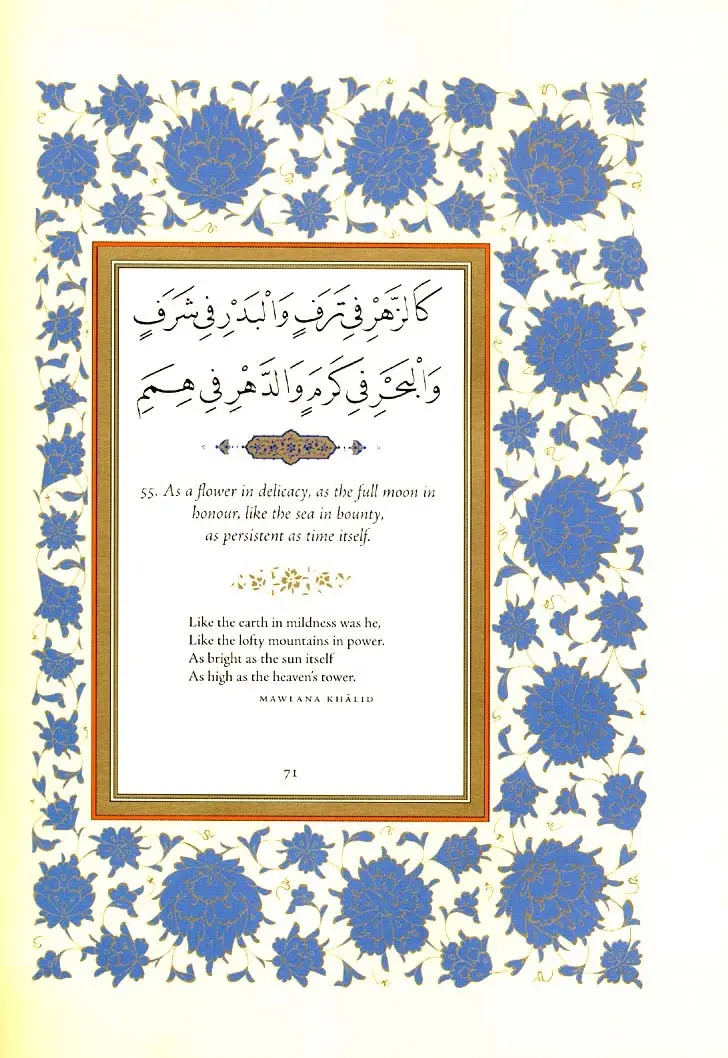 كَالزَّهْرِ فِي تَرَفٍ وَالْبَدْرِ فِي شَرَفٍ
وَالْبَحْرِ فِي كَرَمٍ وَالدَّهْرِ فِي هِمَمِ
55. As a flower in delicacy, as the full moon in
honour, like the sea in bounty,
as persistent as time itself.
Like the earth in mildness was he,
Like the lofty mountains in power.
As bright as the sun itself
As high as the heaven's tower.
MAWLANA KHĀLID
71